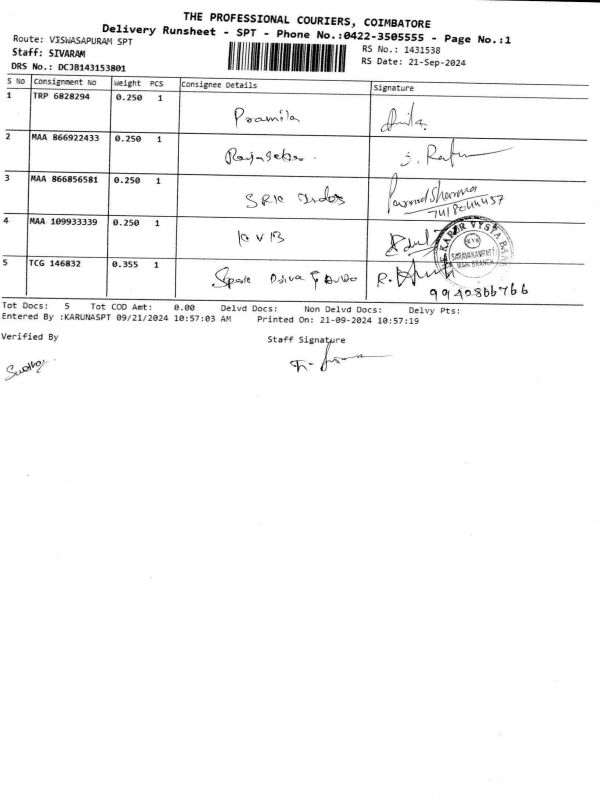 THE PROFESSIONAL COURIERS, COIMBATORE
Delivery Runsheet - SPT - Phone No.:0422-3505555 - Page No.:1
Route: VISWASAPURAM SPT
RS No.: 1431538
Staff: SIVARAM
RS Date: 21-Sep-2024
DRS No.: DCJB143153801
S No Consignment No Weight PCS Consignee Details Signature
1 TRP 6828294 0.250 1 Pramila
2 MAA 866922433 0.250 1 Rajasekar
3 MAA 866856581 0.250 1 SRK Indos Parmod Sharma
7418044457
4 MAA 109933339 0.250 1 KVB
KARUR VYSYA BANK
KVB
SARAVANAMPATTI
MAIN BRANCH
5 TCG 146832 0.355 1 Spark Drive
9942866766
Tot Docs: 5 Tot COD Amt: 0.00 Delvd Docs: Non Delvd Docs: Delvy Pts:
Entered By :KARUNASPT 09/21/2024 10:57:03 AM Printed On: 21-09-2024 10:57:19
Verified By
Staff Signature